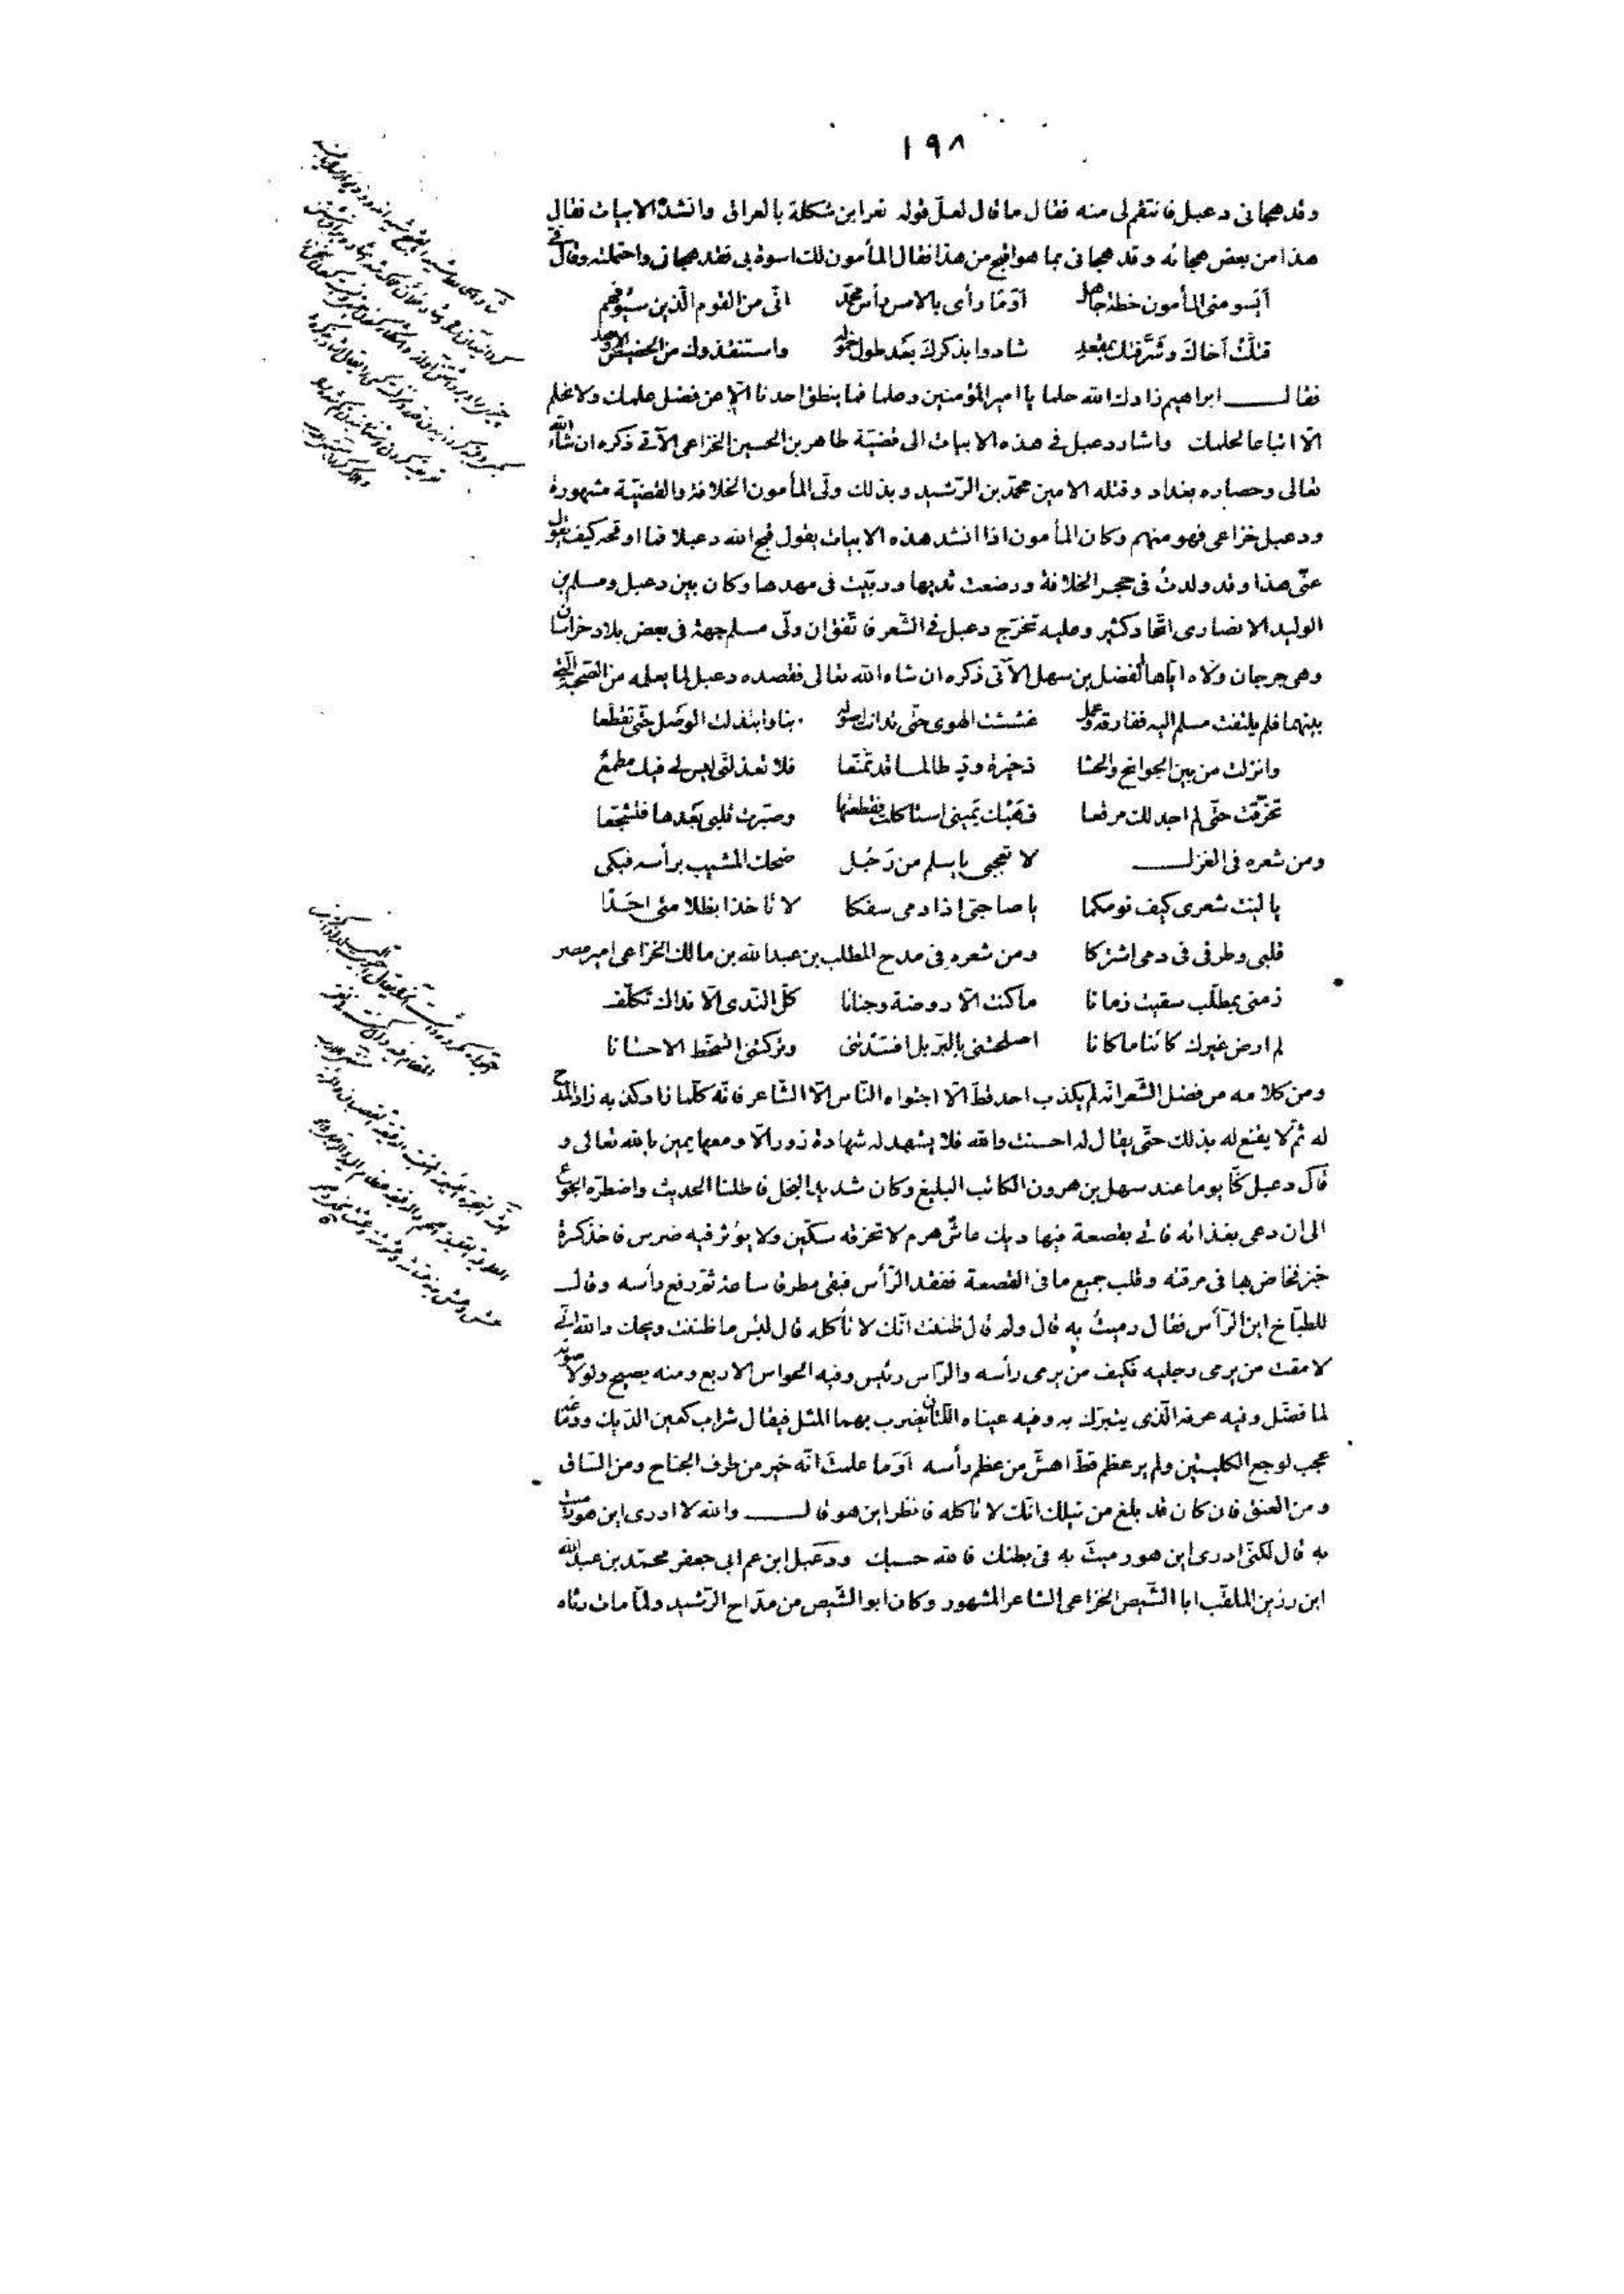 ١٩٨
وقد هجانى دعبل فانتقم لى منه فقال ما قال لعلّ قوله نعر ابن شكلة بالعراق وانشده الابيات فقال
هذا من بعض هجائه وقد هجانى بما هو اقبح من هذا فقال المأمون لك اسوة بى فقد هجانى واحتملته وقال فى
أيسومنى المأمون خطة جاهل أوَمَا رأى بالامس رأس محمّد انّى من القوم الّذين سيوفهم
قتلَتْ أخاك وشَرَّفتك بمقعد شادوا بذكرك بَعْد طول خموله واستنقذوك من الحضيض الاوهد
فقال ابراهيم زادك الله حلما يا امير المؤمنين وعلما فما ينطق احدنا الّا عن فضل علمك ولا نحلم
الّا اتباعا لحلمك واشار دعبل فى هذه الابيات الى قضيّة طاهر بن الحسين الخزاعى الآتى ذكره ان شاء الله
تعالى وحصاره بغداد وقتله الامين محمّد بن الرّشيد وبذلك ولّى المأمون الخلافة والقضيّة مشهورة
ودعبل خزاعى فهو منهم وكان المأمون اذا انشد هذه الابيات يقول قبح الله دعبلا فما اوقحه كيف يقول
عنّى هذا وقد ولدتُ فى حجر الخلافة ورضعت ثديها وربّيت فى مهدها وكان بين دعبل ومسلم بن
الوليد الانصارى اتّحاد كثير وعليه تخرّج دعبل فى الشّعر فاتّفق ان ولّى مسلم جهة فى بعض بلاد خراسان
وهى جرجان ولّاه ايّاها الفضل بن سهل الآتى ذكره ان شاء الله تعالى فقصده دعبل لما يعلمه من الصّحبة الّتى
بينهما فلم يلتفت مسلم اليه ففارقه وعمل غششت الهوى حتّى تداعت اصوله بنا وابتذلت الوصل حتّى تقطّعا
وانزلت من بين الجوانح والحشا ذخيرة ودّ طالما قد تمنّعا فلا تعذلنّى ليس لى فيك مطمع
تخرّقت حتّى لم اجد لك مرقعا فهَبْك يَمينى استاكلت فقطعتها وصبّرت قلبى بَعْدها فتشجّعا
ومن شعره فى الغزل لا تعجبى يا سلم من رَجُل ضحك المشيب برأسه فبكى
يا ليت شعرى كيف نومكما يا صاحبىّ اذا دمى سفكا لا تاخذا بظلامتى احَدًا
قلبى وطرفى فى دمى اشتركا ومن شعره فى مدح المطلب بن عبد الله بن مالك الخزاعى امير مصر
زمنى بمطلّب سقيت زمانا ما كنت الّا روضة وجنانا كلّ النّدى الّا نداك تكلّف
لم ارض غيرك كائنا ما كانا اصلحتنى بالبرّ بل افسَدْتنى وتركتنى اتسخّط الاحسانا
ومن كلامه من فضل الشّعر انّه لم يكذب احد قطّ الّا اجتواه النّاس الّا الشّاعر فانّه كلّما زاد كذبه زاد المدح
له ثمّ لا يقنع له بذلك حتّى يقال له احسنت والله فلا يشهد له شهادة زور الّا ومعها يمين بالله تعالى و
قال دعبل كنّا يوما عند سهل بن هرون الكاتب البليغ وكان شديد البخل فاطلنا الحديث واضطرّه الجوع
الى ان دعى بغذائه فاتى بقصعة فيها ديك عاسٍ هرم لا تخرقه سكّين ولا يؤثر فيه ضرس فاخذ كسرة
خبز فخاض بها فى مرقته وقلب جميع ما فى القصعة ففقد الرّأس فبقى مطرقا ساعة ثمّ رفع رأسه وقال
للطبّاخ اين الرّأس فقال رميتُ به قال ولم قال ظننت انّك لا تأكله قال لبئس ما ظننت ويحك والله انّى
لامقت من يرمى رجليه فكيف من يرمى رأسه والرّأس رئيس وفيه الحواس الاربع ومنه يصيح ولولا صوته
لما فضّل وفيه عرفه الّذى يتبرّك به وفيه عيناه اللّتان يضرب بهما المثل فيقال شراب كعين الدّيك ودماغه
عجب لوجع الكليتين ولم ير عظم قطّ اهشّ من عظم رأسه أوَما علمتَ انّه خير من طرف الجناح ومن السّاق
ومن العنق فان كان قد بلغ من نبلك انّك لا تاكله فانظر اين هو قال والله لا ادرى اين هو رميت
به قال لكنّى ادرى اين هو رميتَ به فى بطنك فالله حسبك ودعبل ابن عم ابى جعفر محمّد بن عبد الله
ابن رزين الملقّب ابا الشّيص الخزاعى الشاعر المشهور وكان ابو الشّيص من مدّاح الرّشيد ولمّا مات رثاه